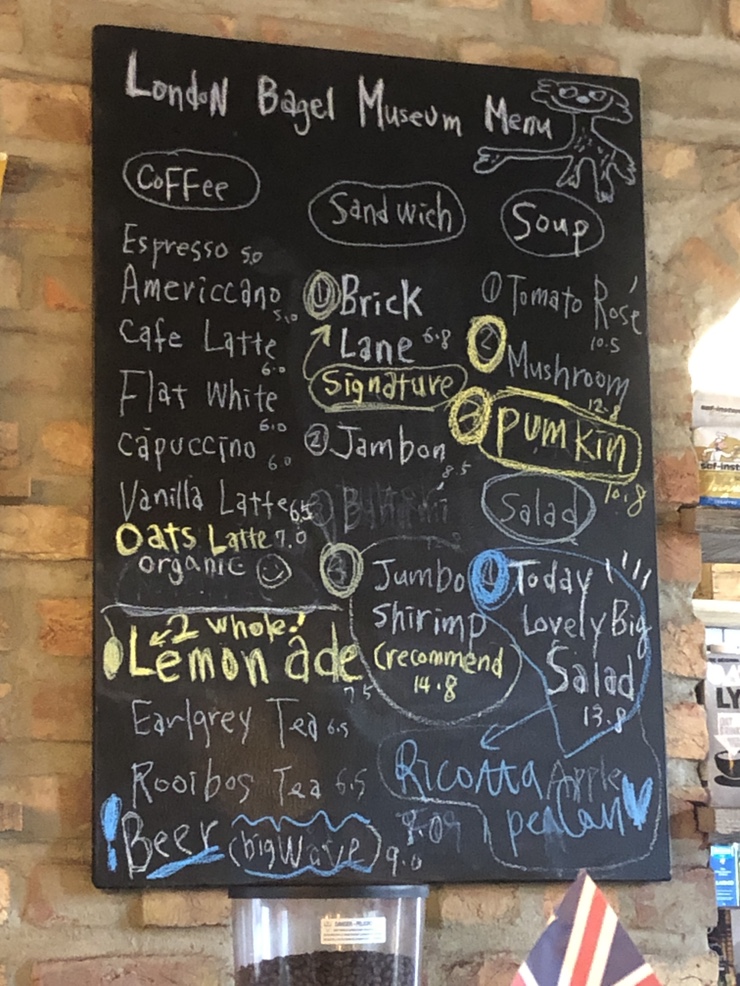 London Bagel Museum Menu
Coffee
Espresso 5.0
Americcano 5.0
Cafe Latte 6.0
Flat White 6.0
capuccino 6.0
Vanilla Latte 6.5
Oats Latte 7.0
organic
2 whole!
Lemon ade 7.5
Earlgrey Tea 6.5
Rooibos Tea 6.5
! Beer (big wave) 9.0
Sandwich
① Brick
Lane 6.8
Signature
② Jambon 8.5
④ Jumbo
shirimp
(recommend
14.8
Soup
① Tomato Rosé
10.5
② Mushroom
12.8
③ pumkin
10.8
Salad
① Today !!!!
Lovely Big
Salad
13.8
Ricotta Apple
pecan
DANGER - PELIGRO
saf-inst
LY